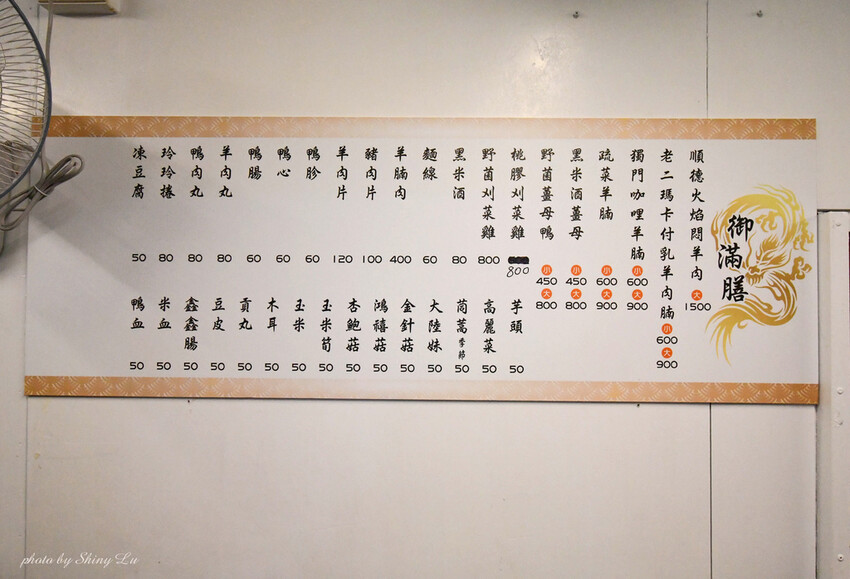 御滿膳
順德火焰悶羊肉 大 1500
老二瑪卡付乳羊肉腩 小 600 大 900
獨門咖哩羊腩 小 600 大 900
疏菜羊腩 小 600 大 900
黑米酒薑母 小 450 大 800
野菌薑母鴨 小 450 大 800
桃膠刈菜雞 800
野菌刈菜雞 800
黑米酒 80
麵線 60
羊腩肉 400
豬肉片 100
羊肉片 120
鴨胗 60
鴨心 60
鴨腸 60
羊肉丸 80
鴨肉丸 80
玲玲捲 80
凍豆腐 50
芋頭 50
高麗菜 50
茼蒿季節 50
大陸妹 50
金針菇 50
鴻禧菇 50
杏鮑菇 50
玉米筍 50
玉米 50
木耳 50
貢丸 50
豆皮 50
鑫鑫腸 50
米血 50
鴨血 50
photo by Shiny Lu